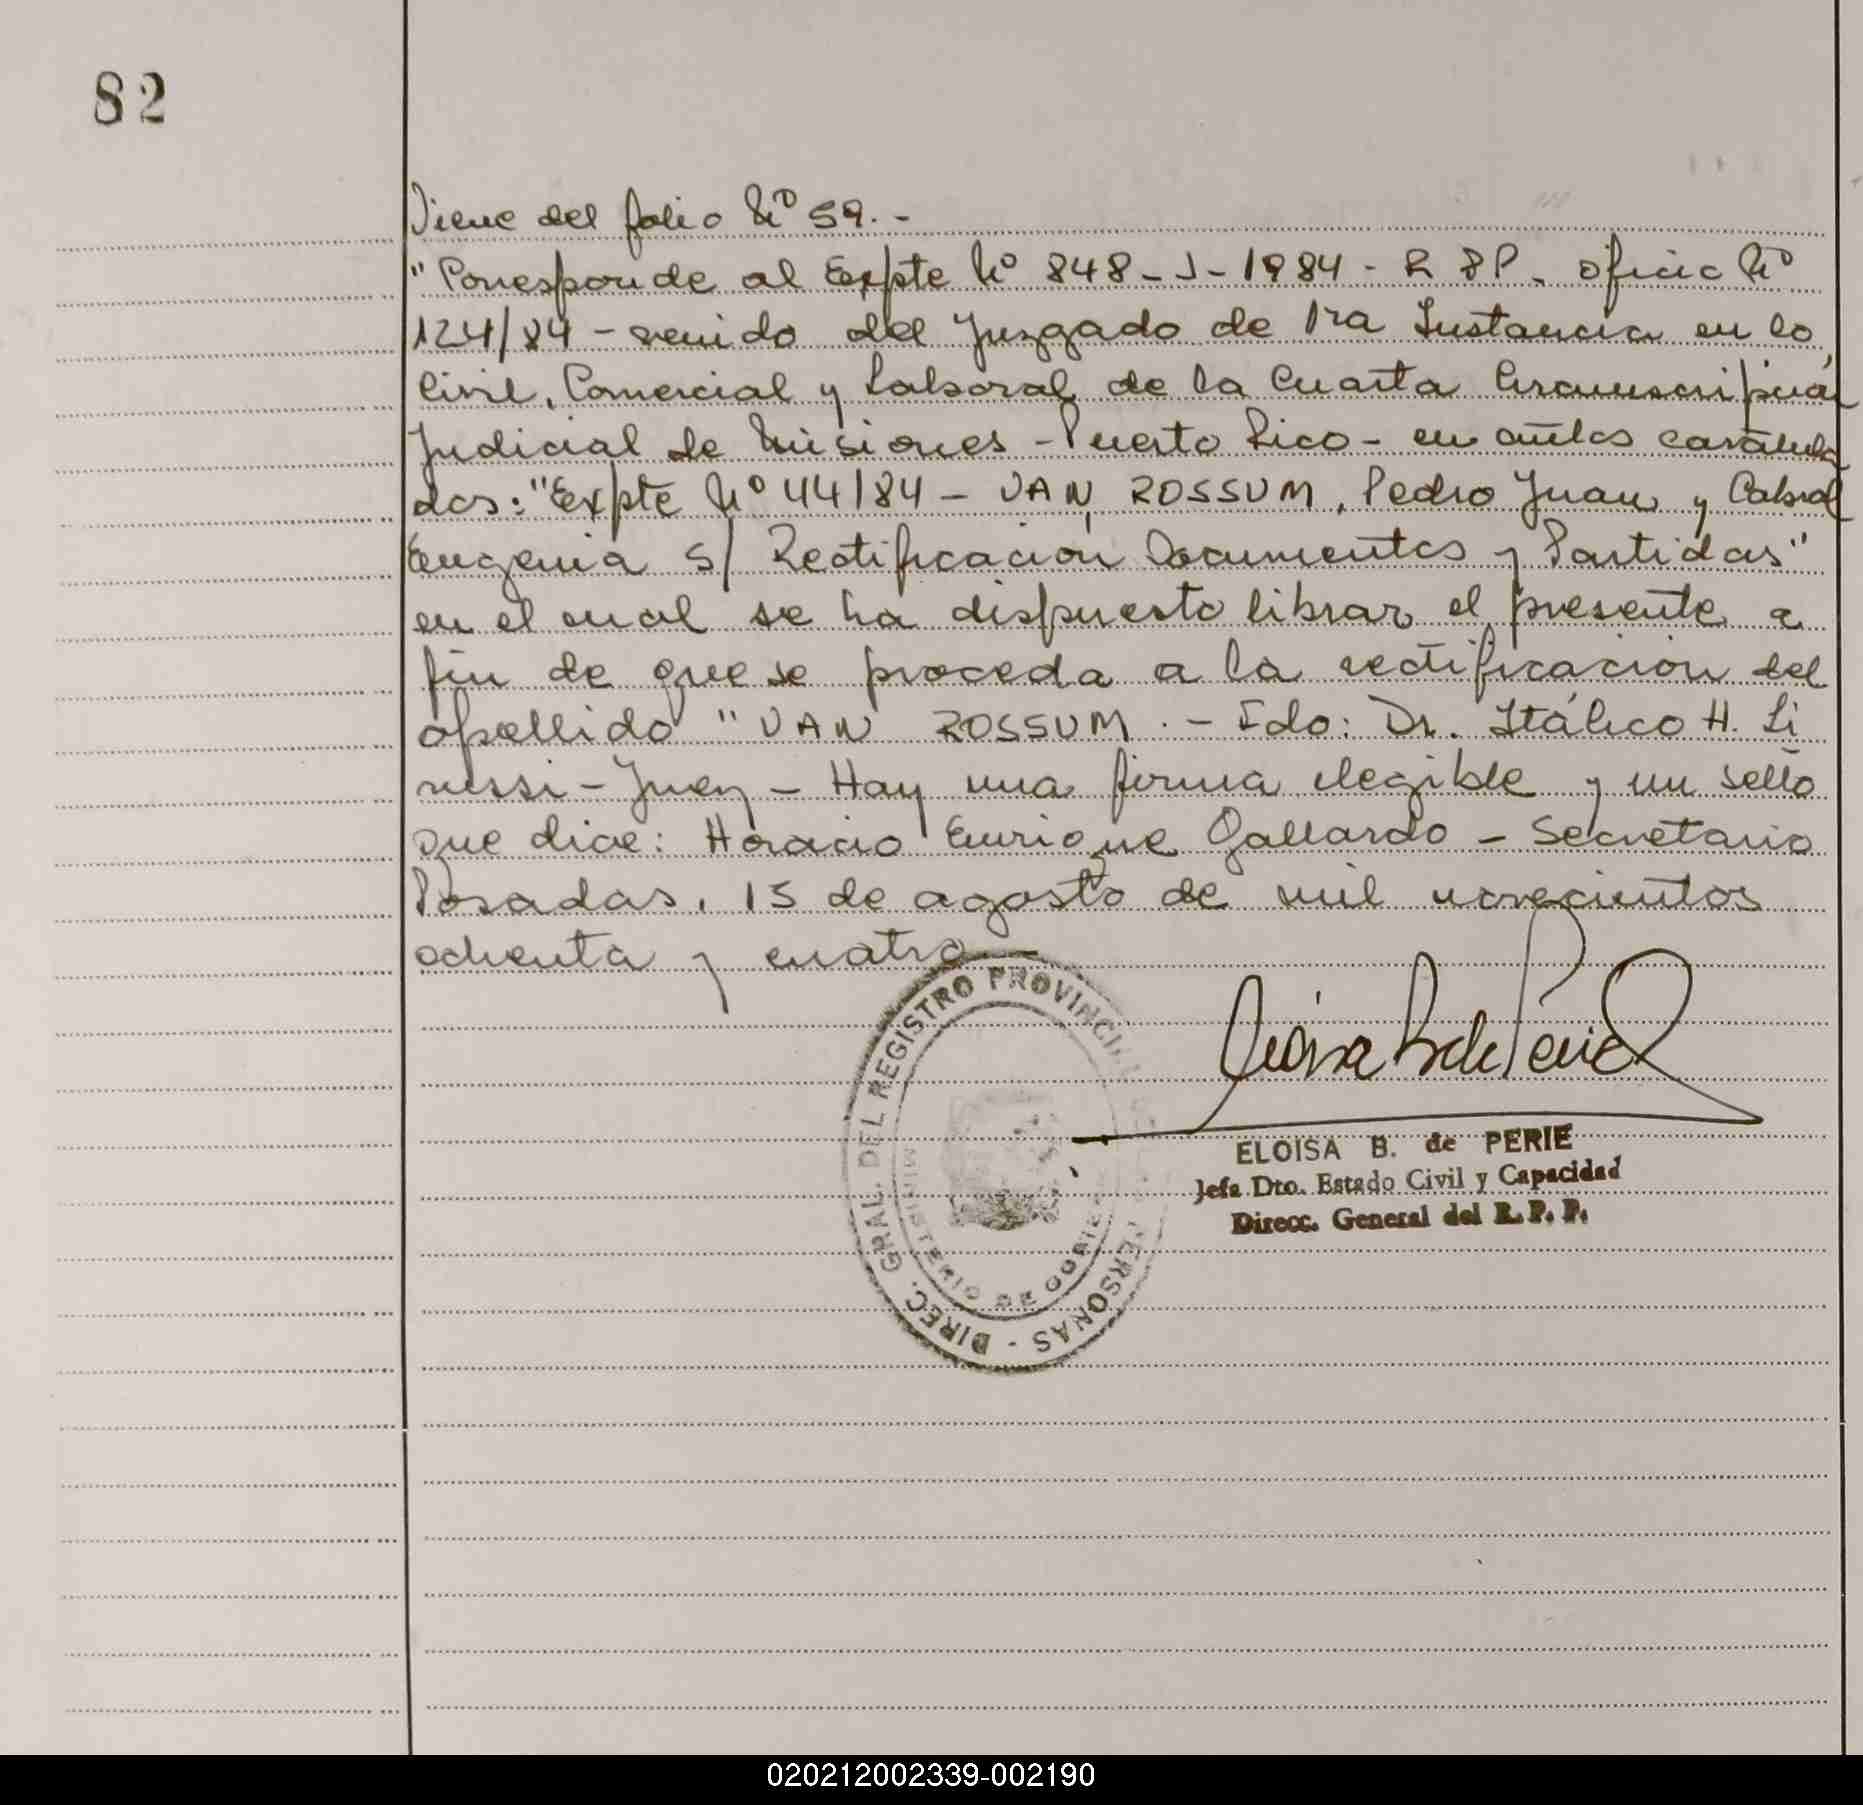 82
Viene del folio Nº 59.-
"Corresponde al Expte Nº 848-J-1984 - R P P. oficio Nº
124/84 - venido del Juzgado de 1ra Instancia en lo
Civil, Comercial y Laboral de la Cuarta Circunscripción
Judicial de Misiones - Puerto Rico - en autos caratula
dos: "Expte Nº 44/84 - VAN ROSSUM, Pedro Juan y Cabral
Eugenia S/ Rectificación Documentos y Partidas"
en el cual se ha dispuesto librar el presente a
fin de que se proceda a la rectificación del
apellido "VAN ROSSUM. - Fdo: Dr. Itálico H. Li
nessi - Juez - Hay una firma ilegible y un sello
que dice: Horacio Enrique Gallardo - Secretario
Posadas, 15 de agosto de mil novecientos
ochenta y cuatro -
DIREC. GRAL. DEL REGISTRO PROVINCIAL PERSONAS -
MINISTERIO DE GOBIE
ELOISA B. de PERIE
Jefa Dto. Estado Civil y Capacidad
Direcc. General del R. P. P.
020212002339-002190